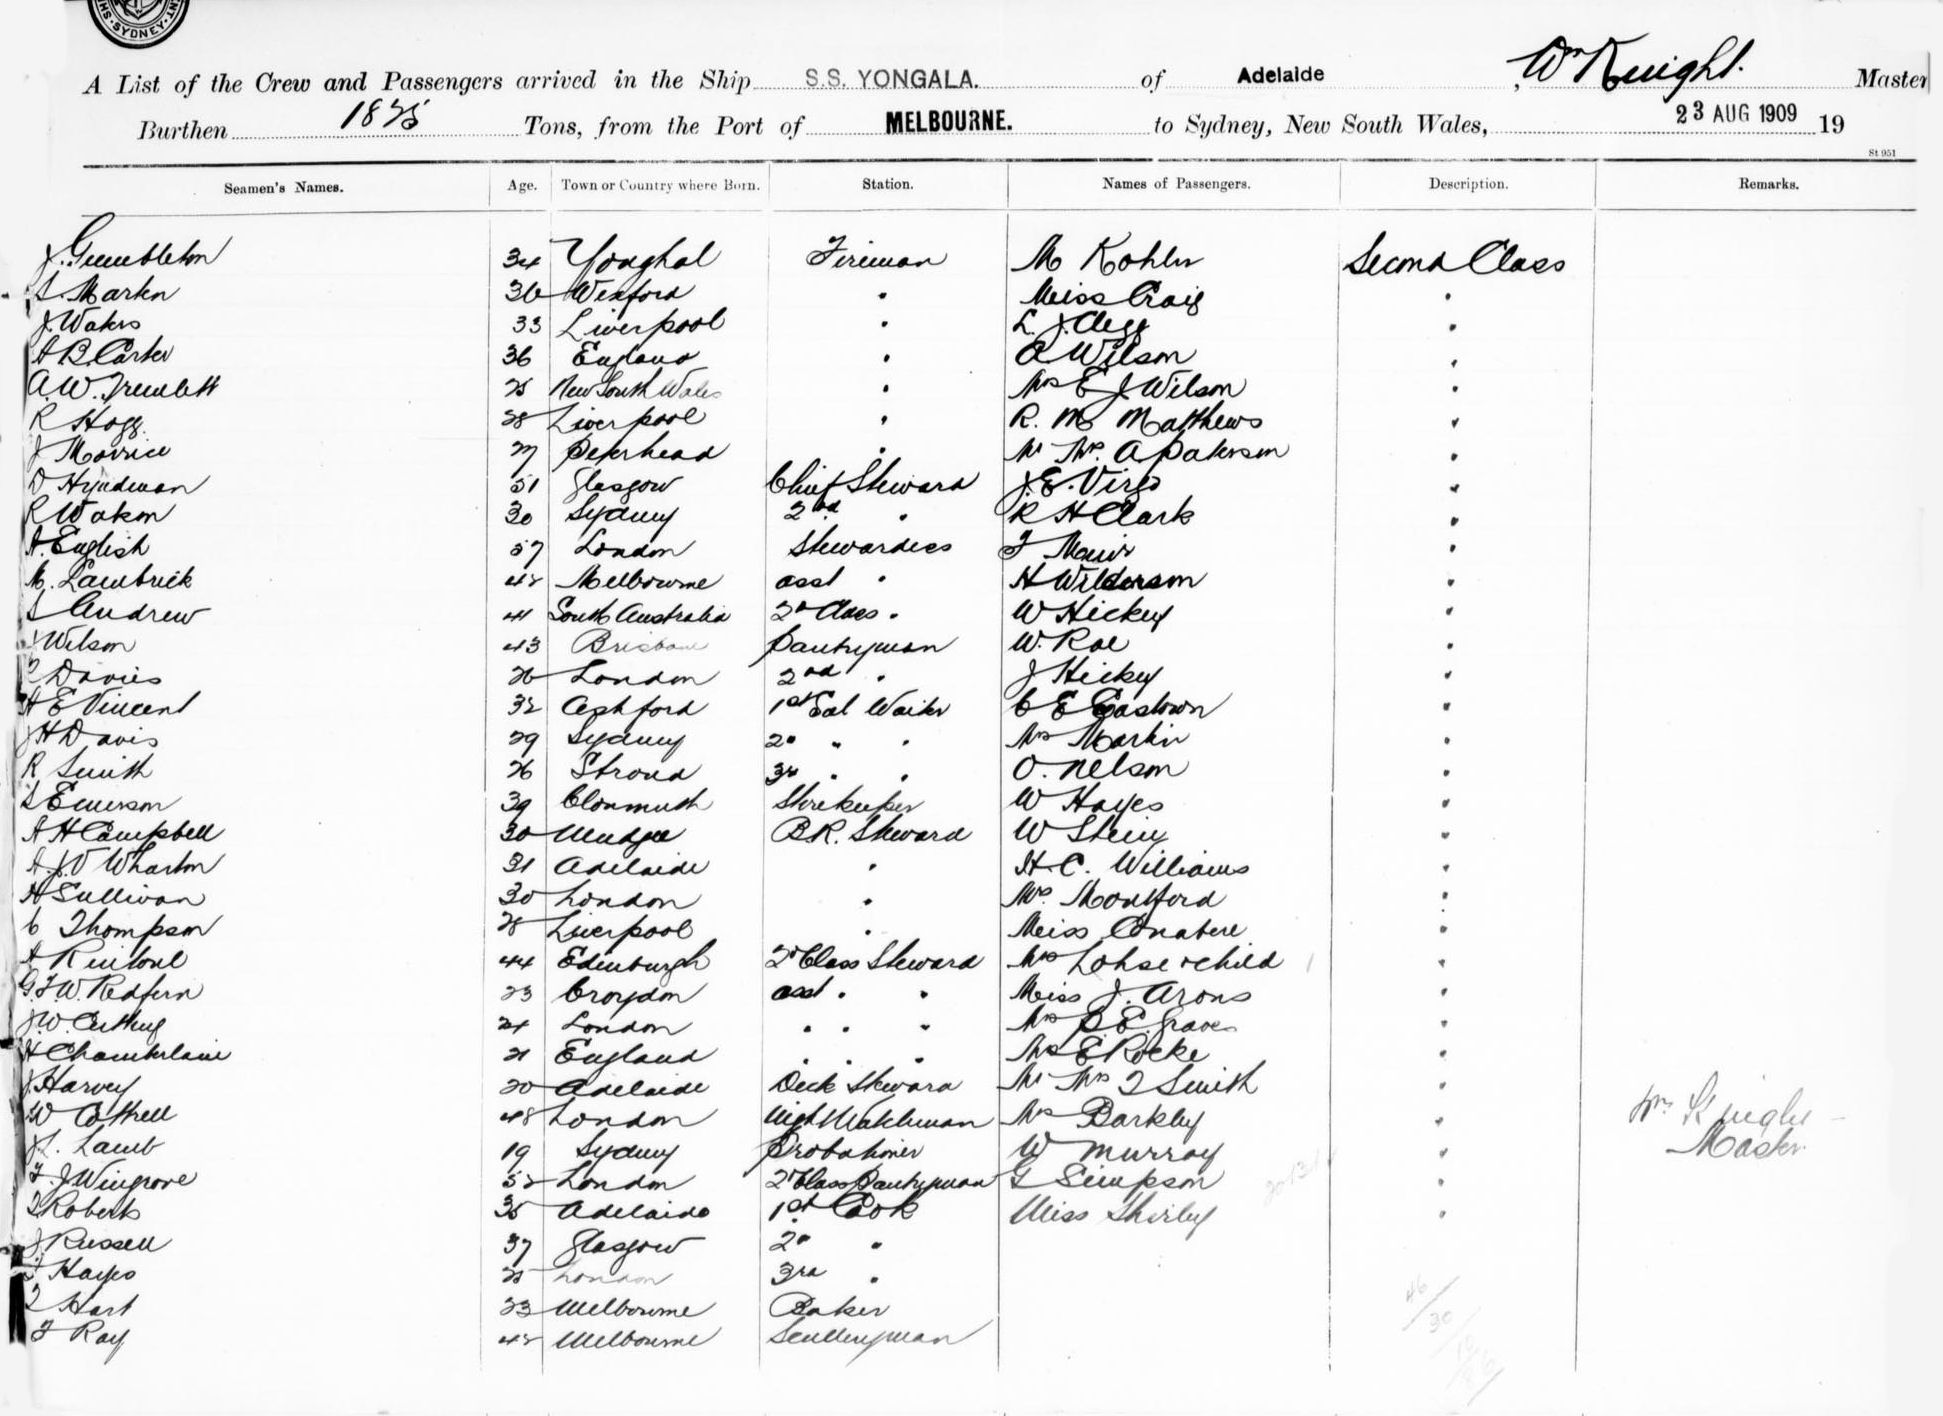 SYDNEY
A List of the Crew and Passengers arrived in the Ship S.S. YONGALA. of Adelaide, Wm Knight. Master
Burthen 1825 Tons, from the Port of MELBOURNE. to Sydney, New South Wales, 23 AUG 1909 19
St 951
Seamen's Names. Age. Town or Country where Born. Station. Names of Passengers. Description. Remarks.
J. Gumbleton 34 Youghal Fireman M Kohler Second Class
S. Martin 36 Wexford " Miss Craig "
J. Waters 33 Liverpool " L. J. Clegg "
A B Carter 36 England " A Wilson "
A. W. Tremlett 25 New South Wales " Mrs E J Wilson "
R Hogg. 28 Liverpool " R. M Matthews "
J Morrice 27 Peterhead " Mr Mrs. A Paterson "
D Hyndman 51 Glasgow Chief Steward J. E. Virgo "
R Waken 30 Sydney 2nd " R H Clark "
A. English 57 London Stewardess F Muir "
M. Lambrick 42 Melbourne asst " H Wilderson "
S Andrew 41 South Australia 2nd Class " W Hickey "
J Wilson 43 Brisbane Pantryman W. Rae "
Davies 26 London 2nd " J Hickey "
H E Vincent 32 Ashford 1st Sal Waiter C E Eastown "
J H Davis 29 Sydney 2nd " " Mrs Martin "
R Smith 26 Stroud 3rd " " O. Nelson "
S Emerson 39 Storekeeper W Hayes "
A H Campbell 30 Mudgee B.R. Steward W Stein "
A. J. V Wharton 31 Adelaide " H. C. Williams "
H Sullivan 30 London " Mrs. Montford "
C Thompson 28 Liverpool " Miss Conabere "
A Rintoul 44 Edinburgh 2nd Class Steward Mrs Lohse & child "
G. F. W. Redfern 23 Croydon asst " " Miss J. Arons "
J. W. 24 London " " " Mrs P. E. Graves "
H Chamberlaine 21 England " " " Mrs E Rocke "
J. Harvey 20 Adelaide Deck Steward Mr Mrs T Smith "
W Cottrell 48 London Night Watchman Mrs Barkley " Wm Knight
J. L. Lamb 19 Sydney Probationer W Murray " Master
F. J. Wingrove 52 London 2nd Class Pantryman G Simpson "
T. Roberts 35 Adelaide 1st Cook Miss Shirley "
J Russell 37 Glasgow 2nd "
F Hayes 25 London 3rd "
T Hart 23 Melbourne Baker
F Ray 42 Melbourne Sculleryman
46
30